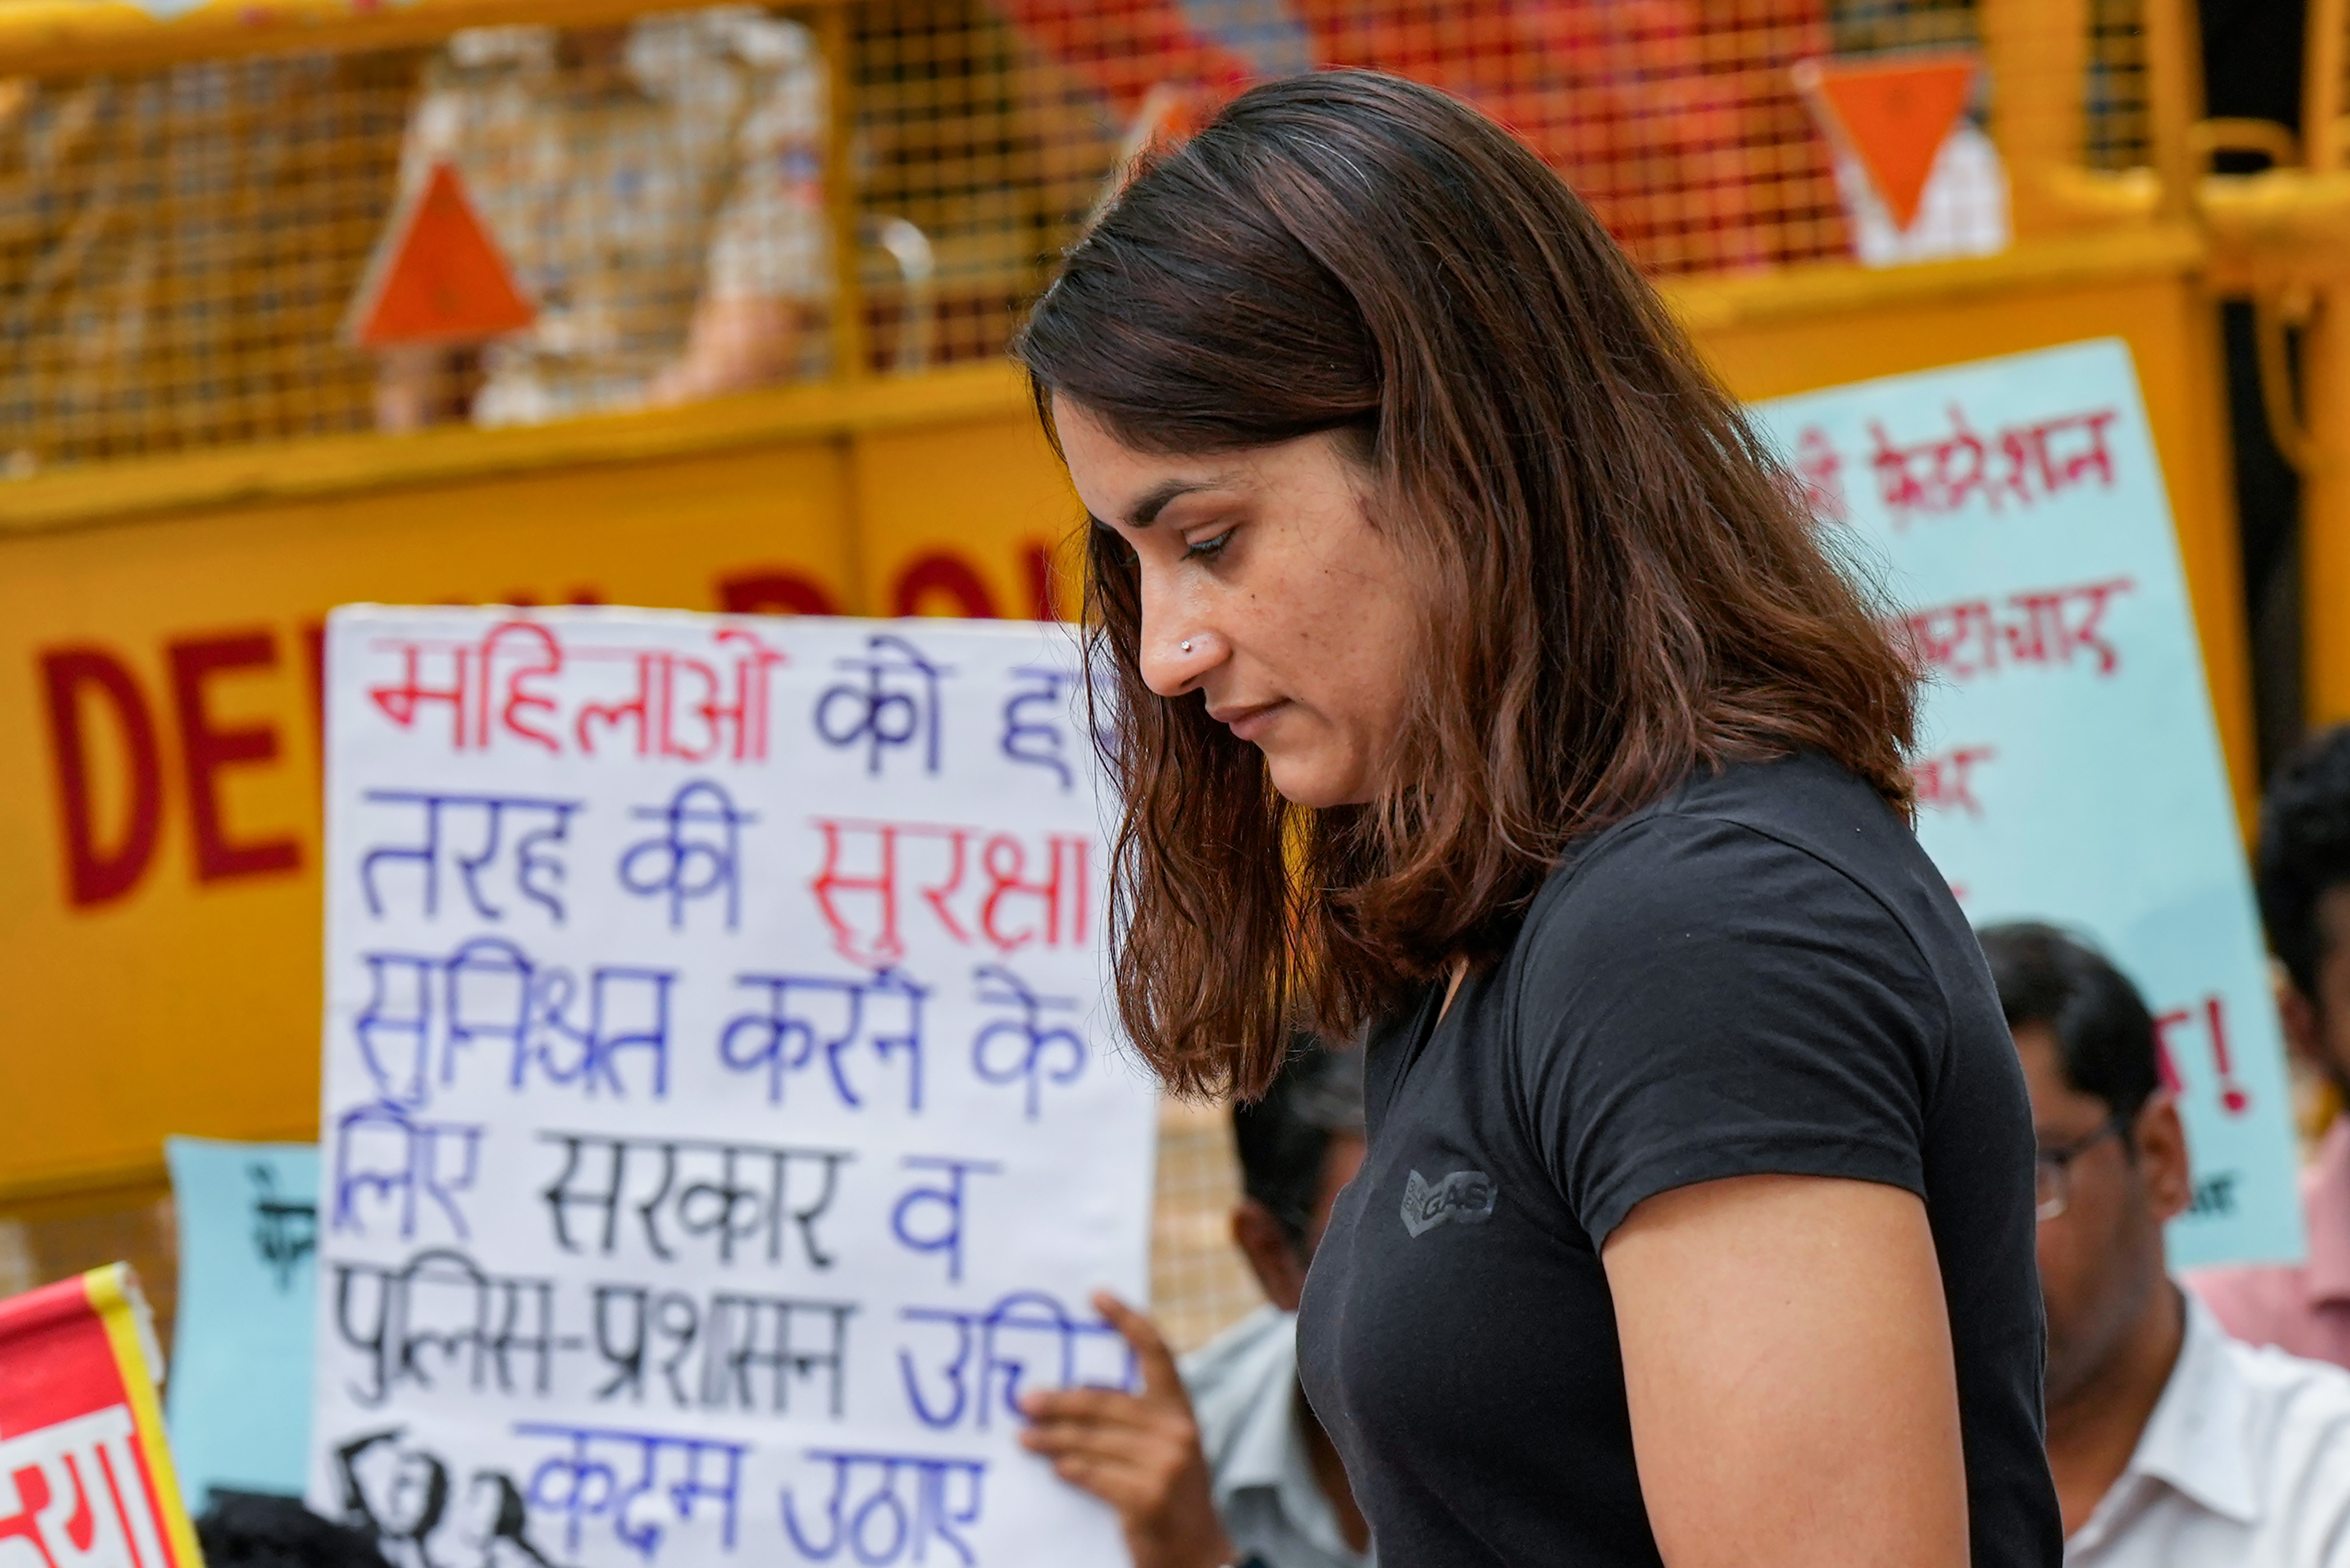 DE
महिलाओं को ह
तरह की सुरक्षा
सुनिश्चित करने के
लिए सरकार व
पुलिस-प्रशासन उचित
कदम उठाए
फेडरेशन
ष्टाचार
GAS